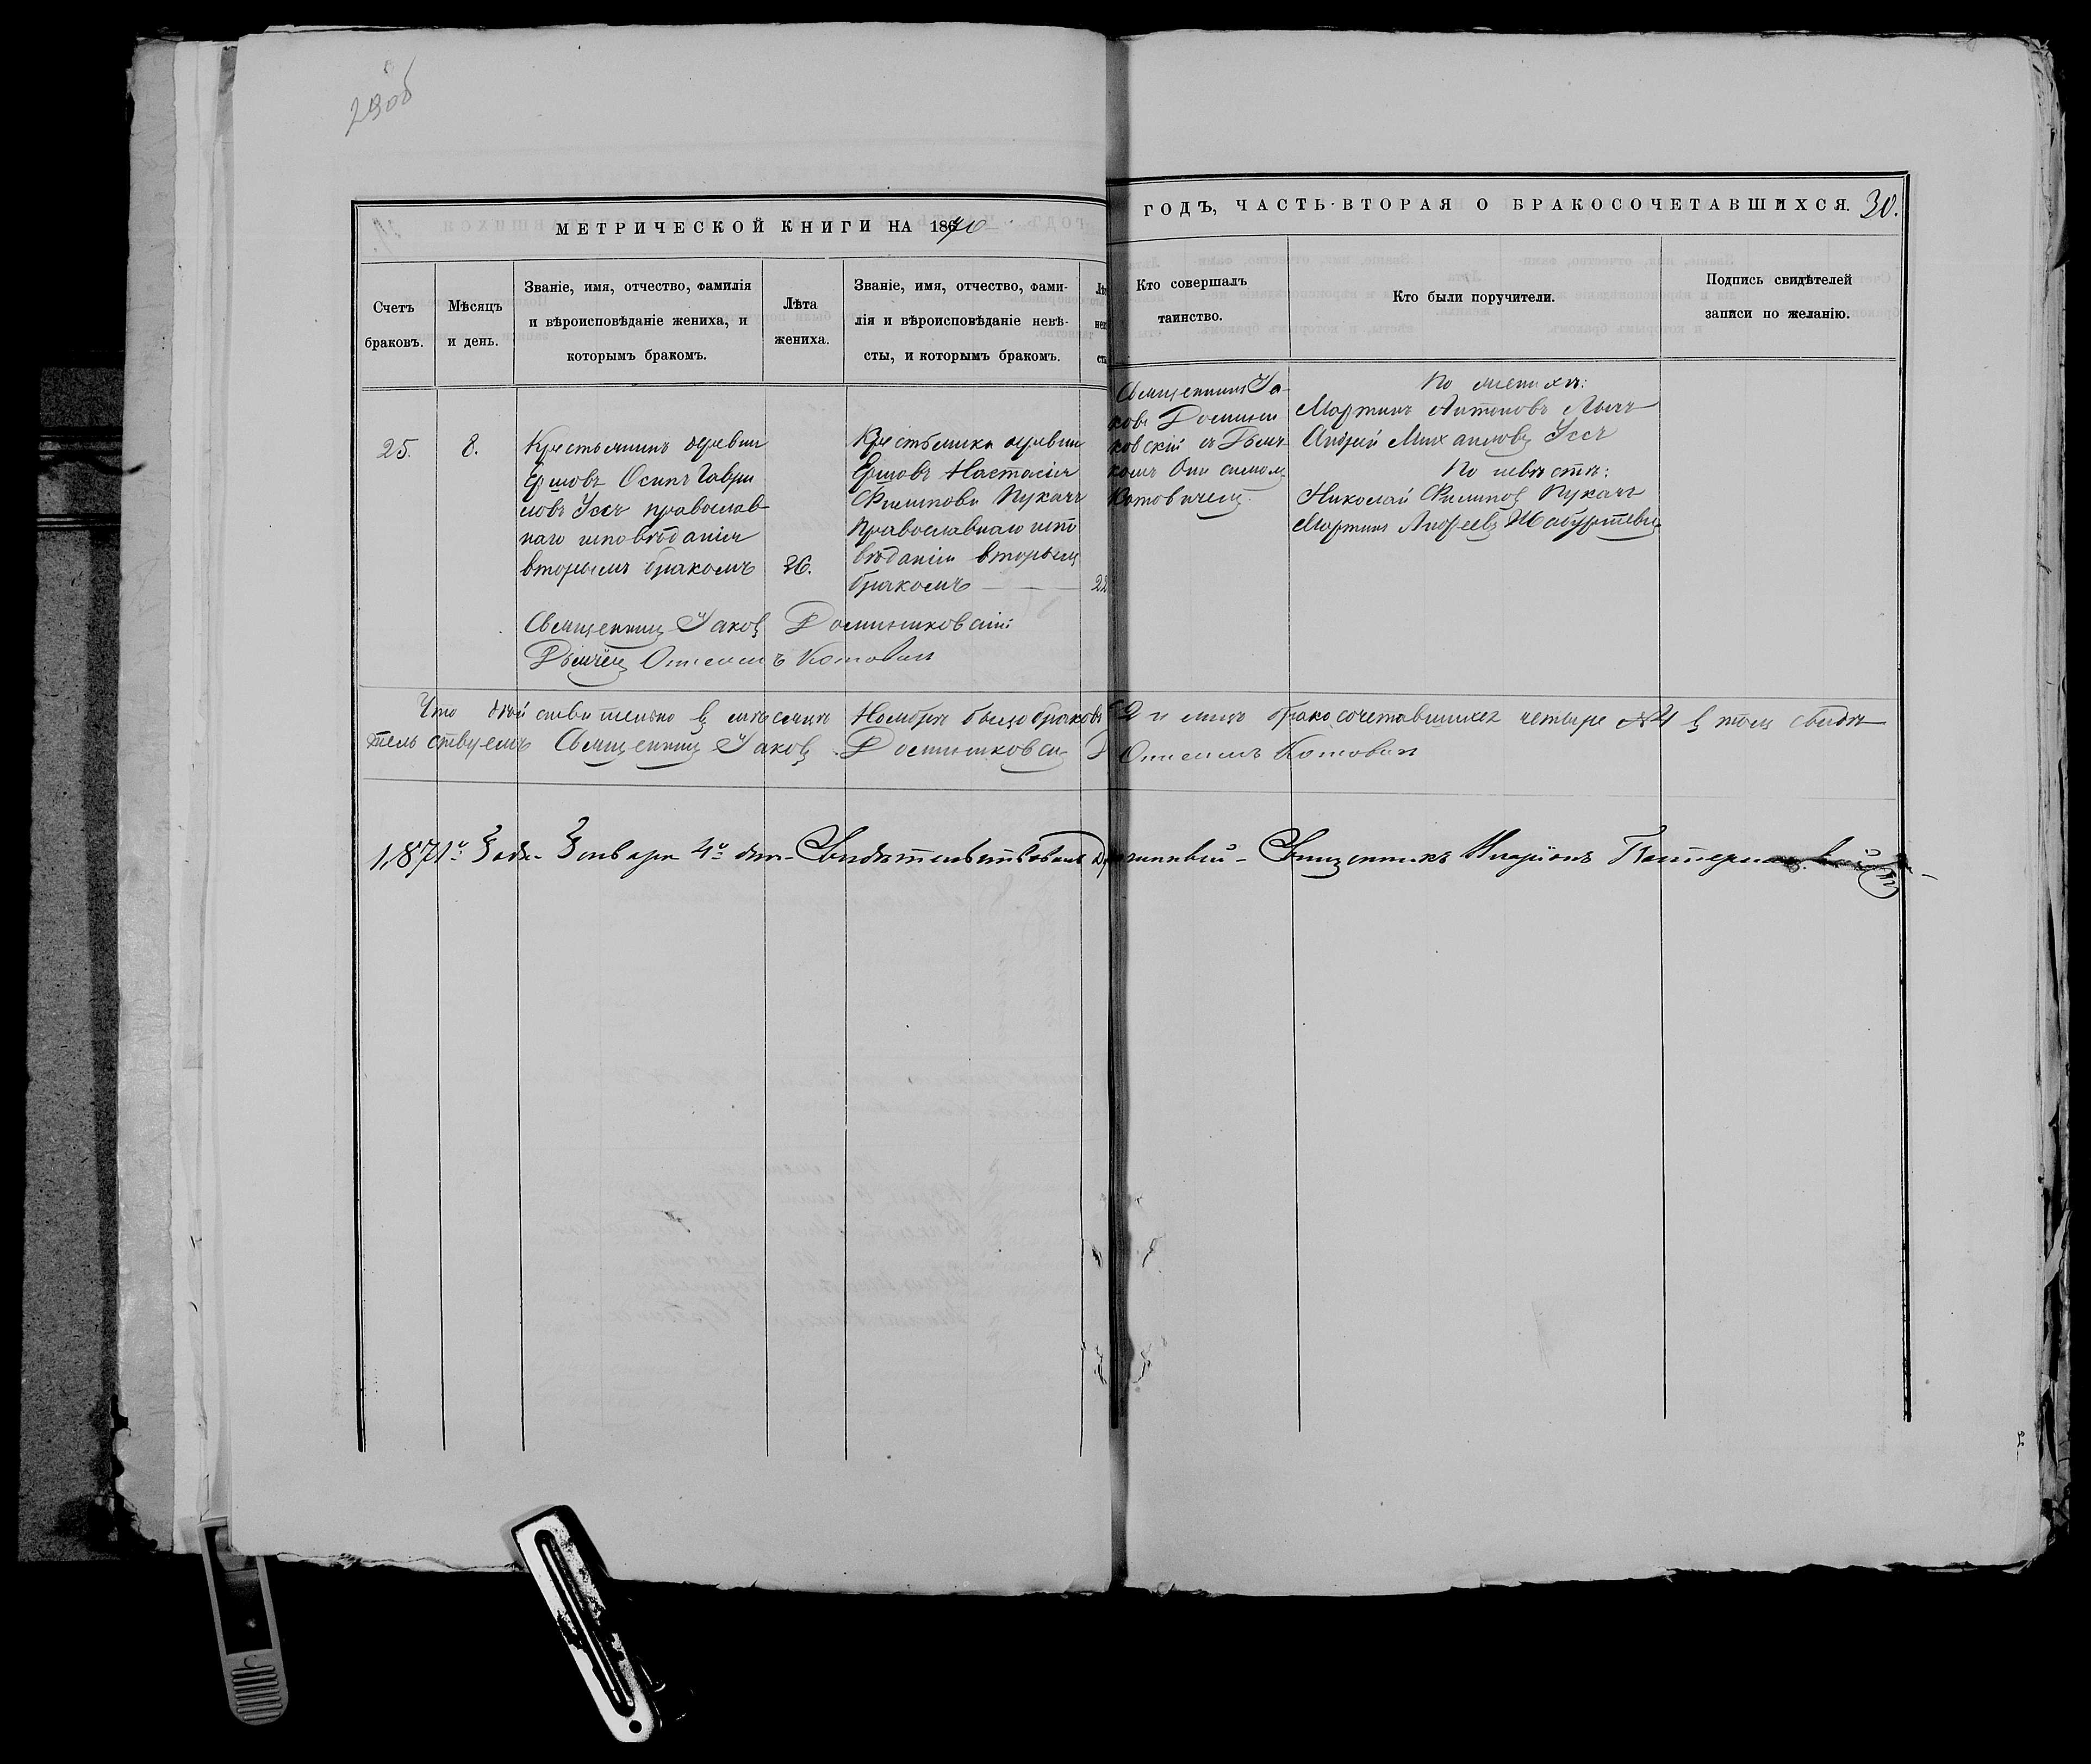 29об
МЕТРИЧЕСКОЙ КНИГИ НА 1870
ГОДЪ, ЧАСТЬ ВТОРАЯ О БРАКОСОЧЕТАВШИХСЯ. 30.
Счетъ
браковъ.
Мѣсяцъ
и день.
Званіе, имя, отчество, фамилія
и вѣроисповѣданіе жениха, и
которымъ бракомъ.
Лѣта
жениха.
Званіе, имя, отчество, фами-
лія и вѣроисповѣданіе невѣ-
сты, и которымъ бракомъ.
Кто совершалъ
таинство.
Кто были поручители.
Подпись свидѣтелей
записи по желанію.
25.
8.
Крестьянинъ деревни
Ершовъ Осипъ Гаври
ловъ Усъ православ
наго исповѣданія
вторымъ бракомъ
26.
Крестьянка деревни
Ершовъ Настасія
Филипова Пукачъ
Православнаго испо
вѣданія вторымъ
бракомъ
22
Священникъ Іа-
ковъ Домини
ковскій съ Дьяч
комъ Онисимом
Котовичемъ
По женихѣ:
Мартинъ Антоновъ
Андрей Михаиловъ Усъ
По невѣстѣ:
Николай Филиповъ Пукачъ
Мартинъ Андреевъ
Священникъ Іаковъ Доминиковскій
Дьячекъ Онисимъ Котовичъ
Что дѣйствительно въ мѣсяцѣ Ноябрѣ было браковъ 2 и лицъ бракосочетавшихся четыре №4 въ томъ свидѣ
тельствуемъ Священникъ Іаковъ Доминиковскій Д Онисимъ Котовичъ
1871го Года Января 4го дня Свидѣтельствовалъ Священникъ Иларіонъ